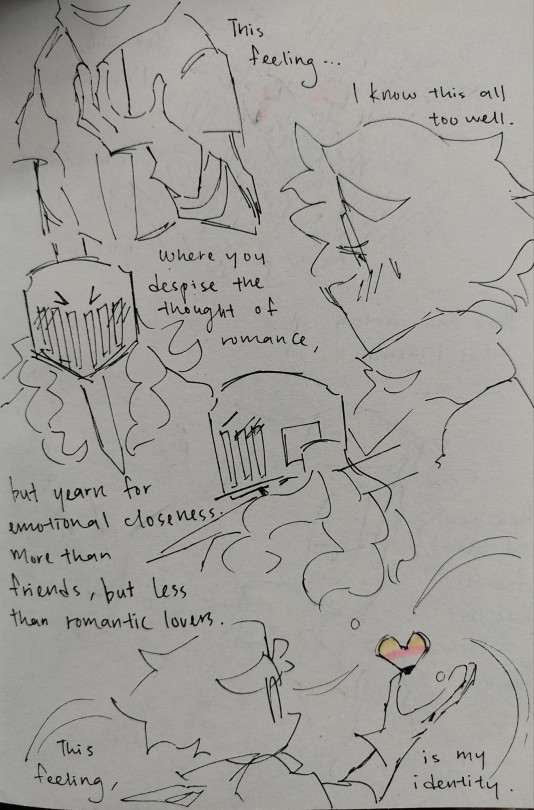 This
feeling...
I know this all
too well.
where you
despise the
thought of
romance,
but yearn for
emotional closeness.
More than
friends, but less
than romantic lovers.
This
feeling,
is my
identity.